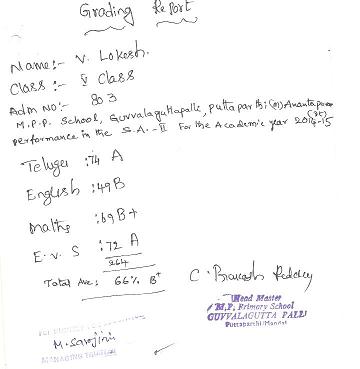 Grading Report
Name:- V. Lokesh.
Class :- V Class
Adm No:- 803
M.P.P. School, Guvvalaguttapalli, puttaparthi (M) Anantapoor (Dt)
performance in the S.A.-II For the Academic year 2014-15
Telugu :74 A
English :49 B
Maths :69 B+
E.V.S :72 A
264
Total Ave: 66% B+
C. Prakash Reddy
Head Master
M.P. Primary School
GUVVALAGUTTA PALLI
Puttaparthi Mandal
M. Sarojini
MANAGING TRUSTEE